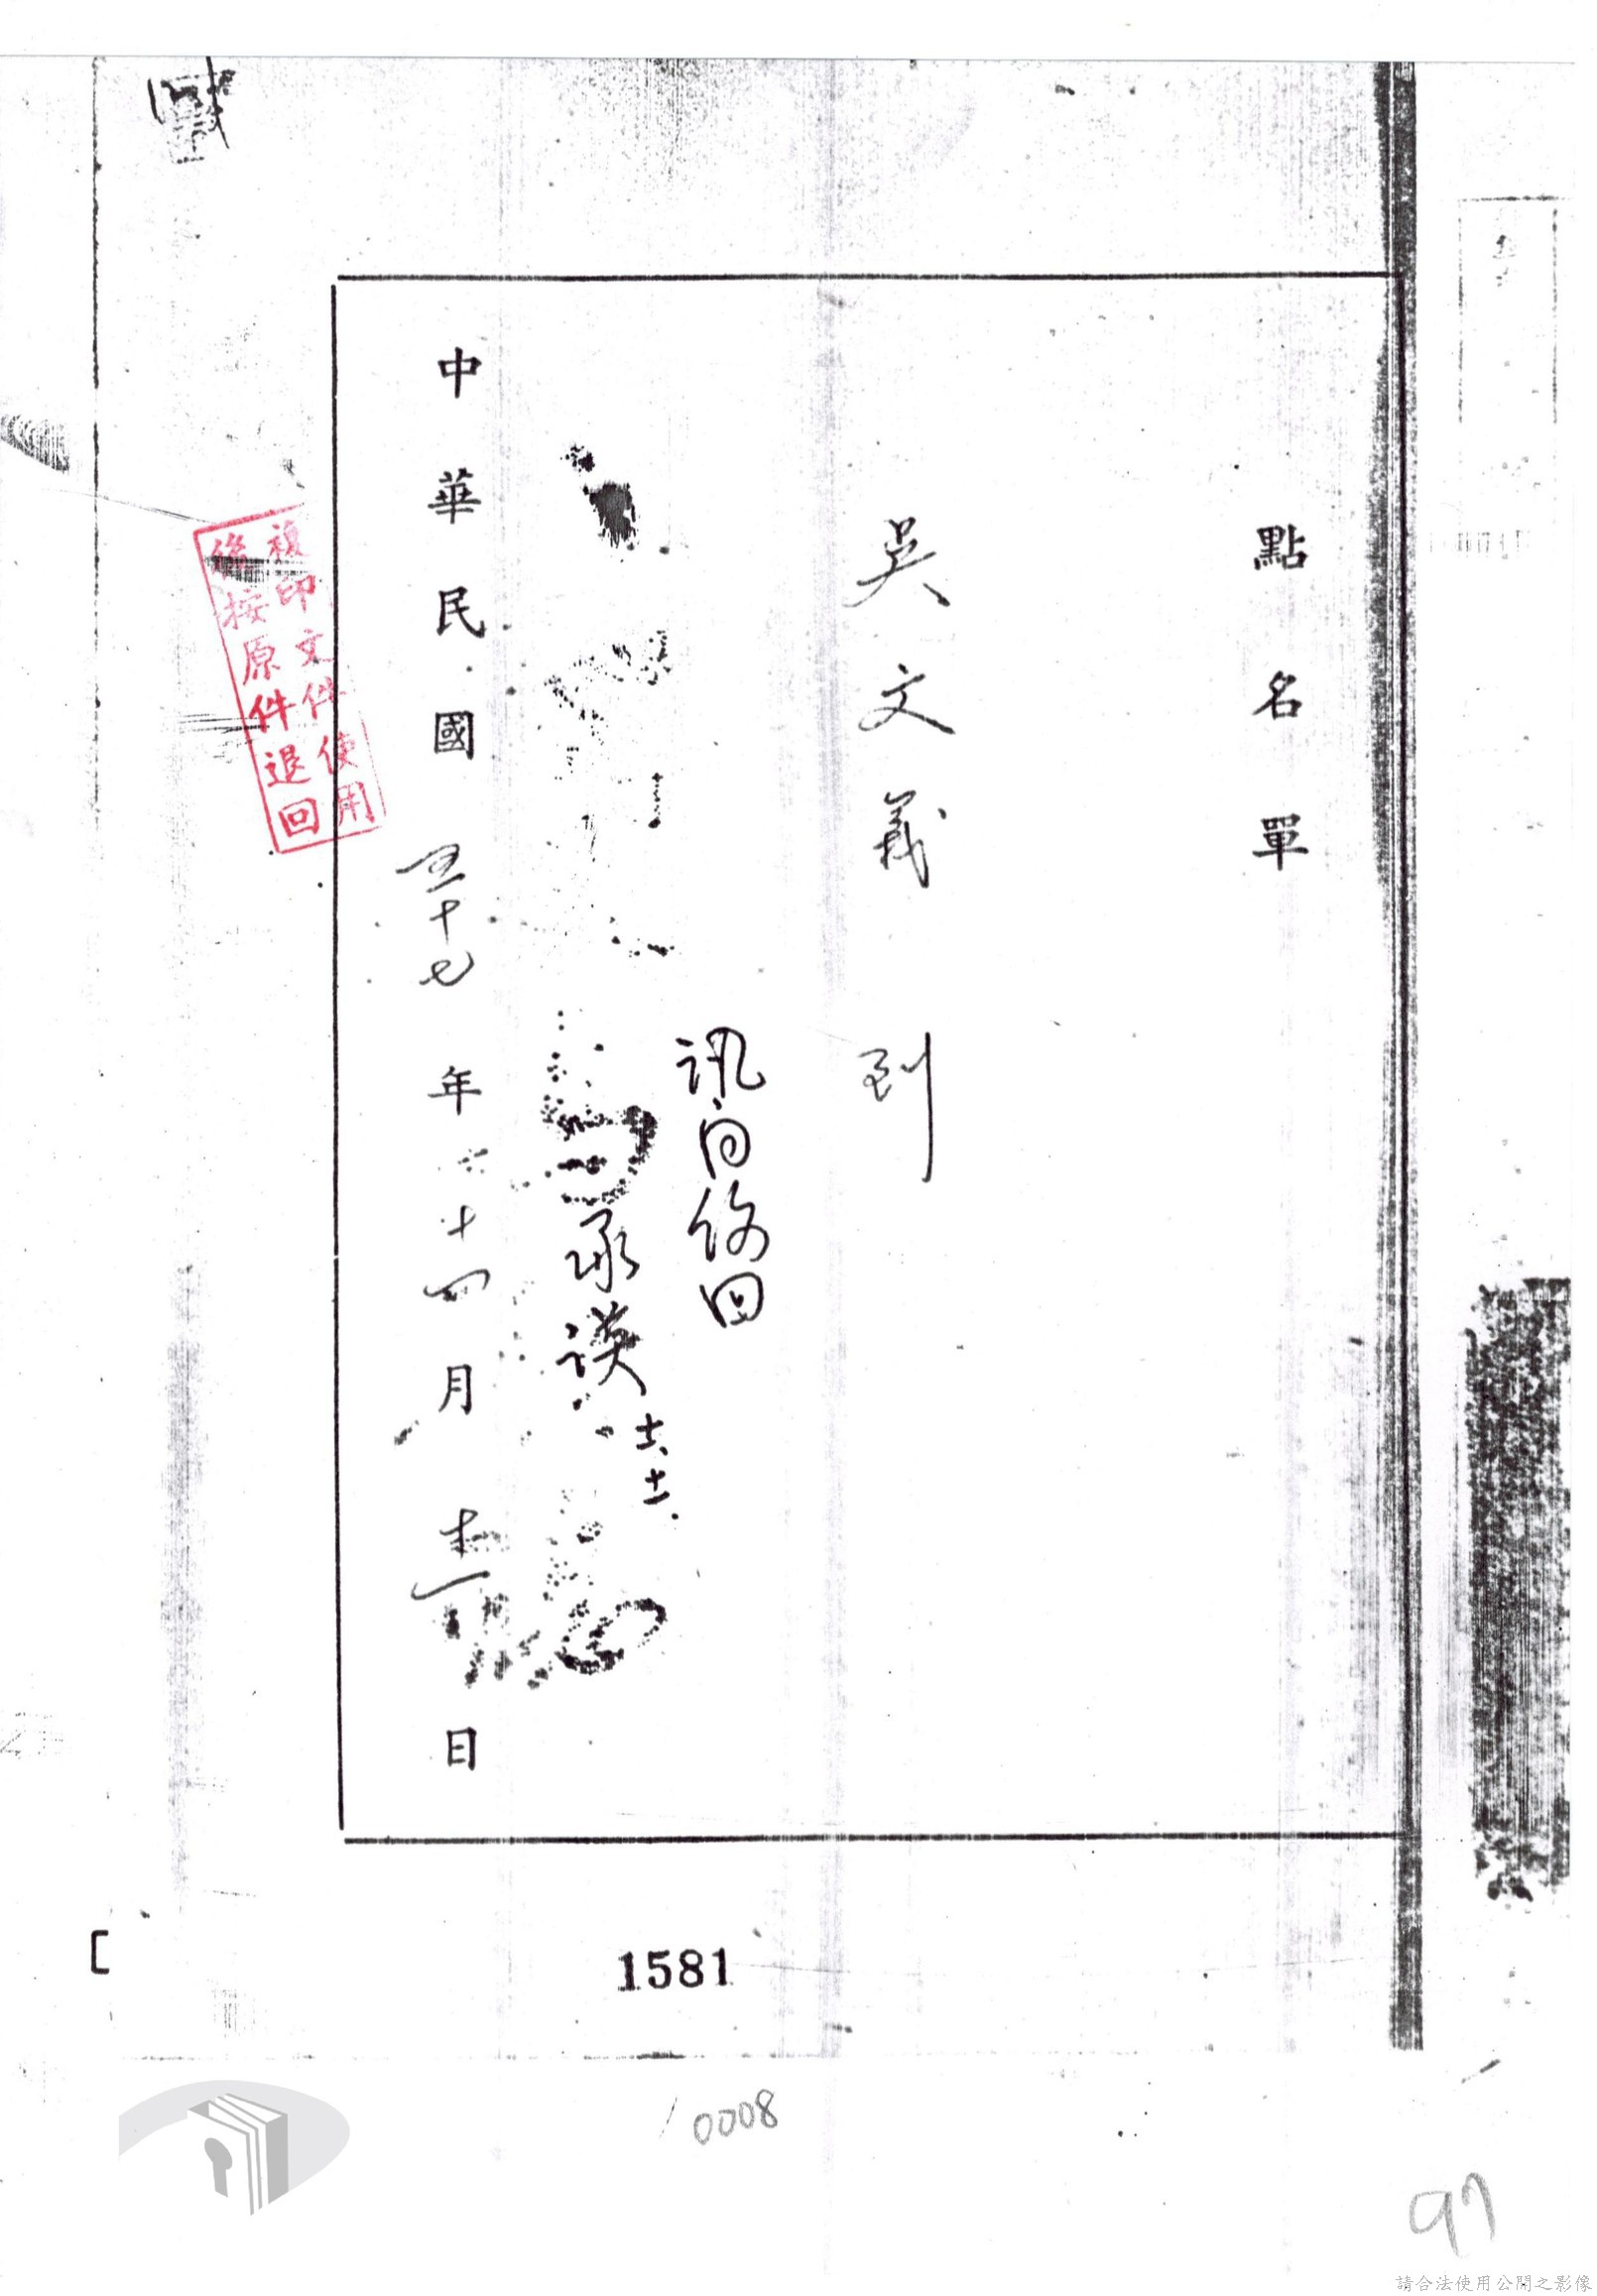 點名單
吳文義 到
訊後
承謨
中華民國五十七年十月日
複印文件使用
後按原件退回
1581
0008
97
請合法使用公開之影像